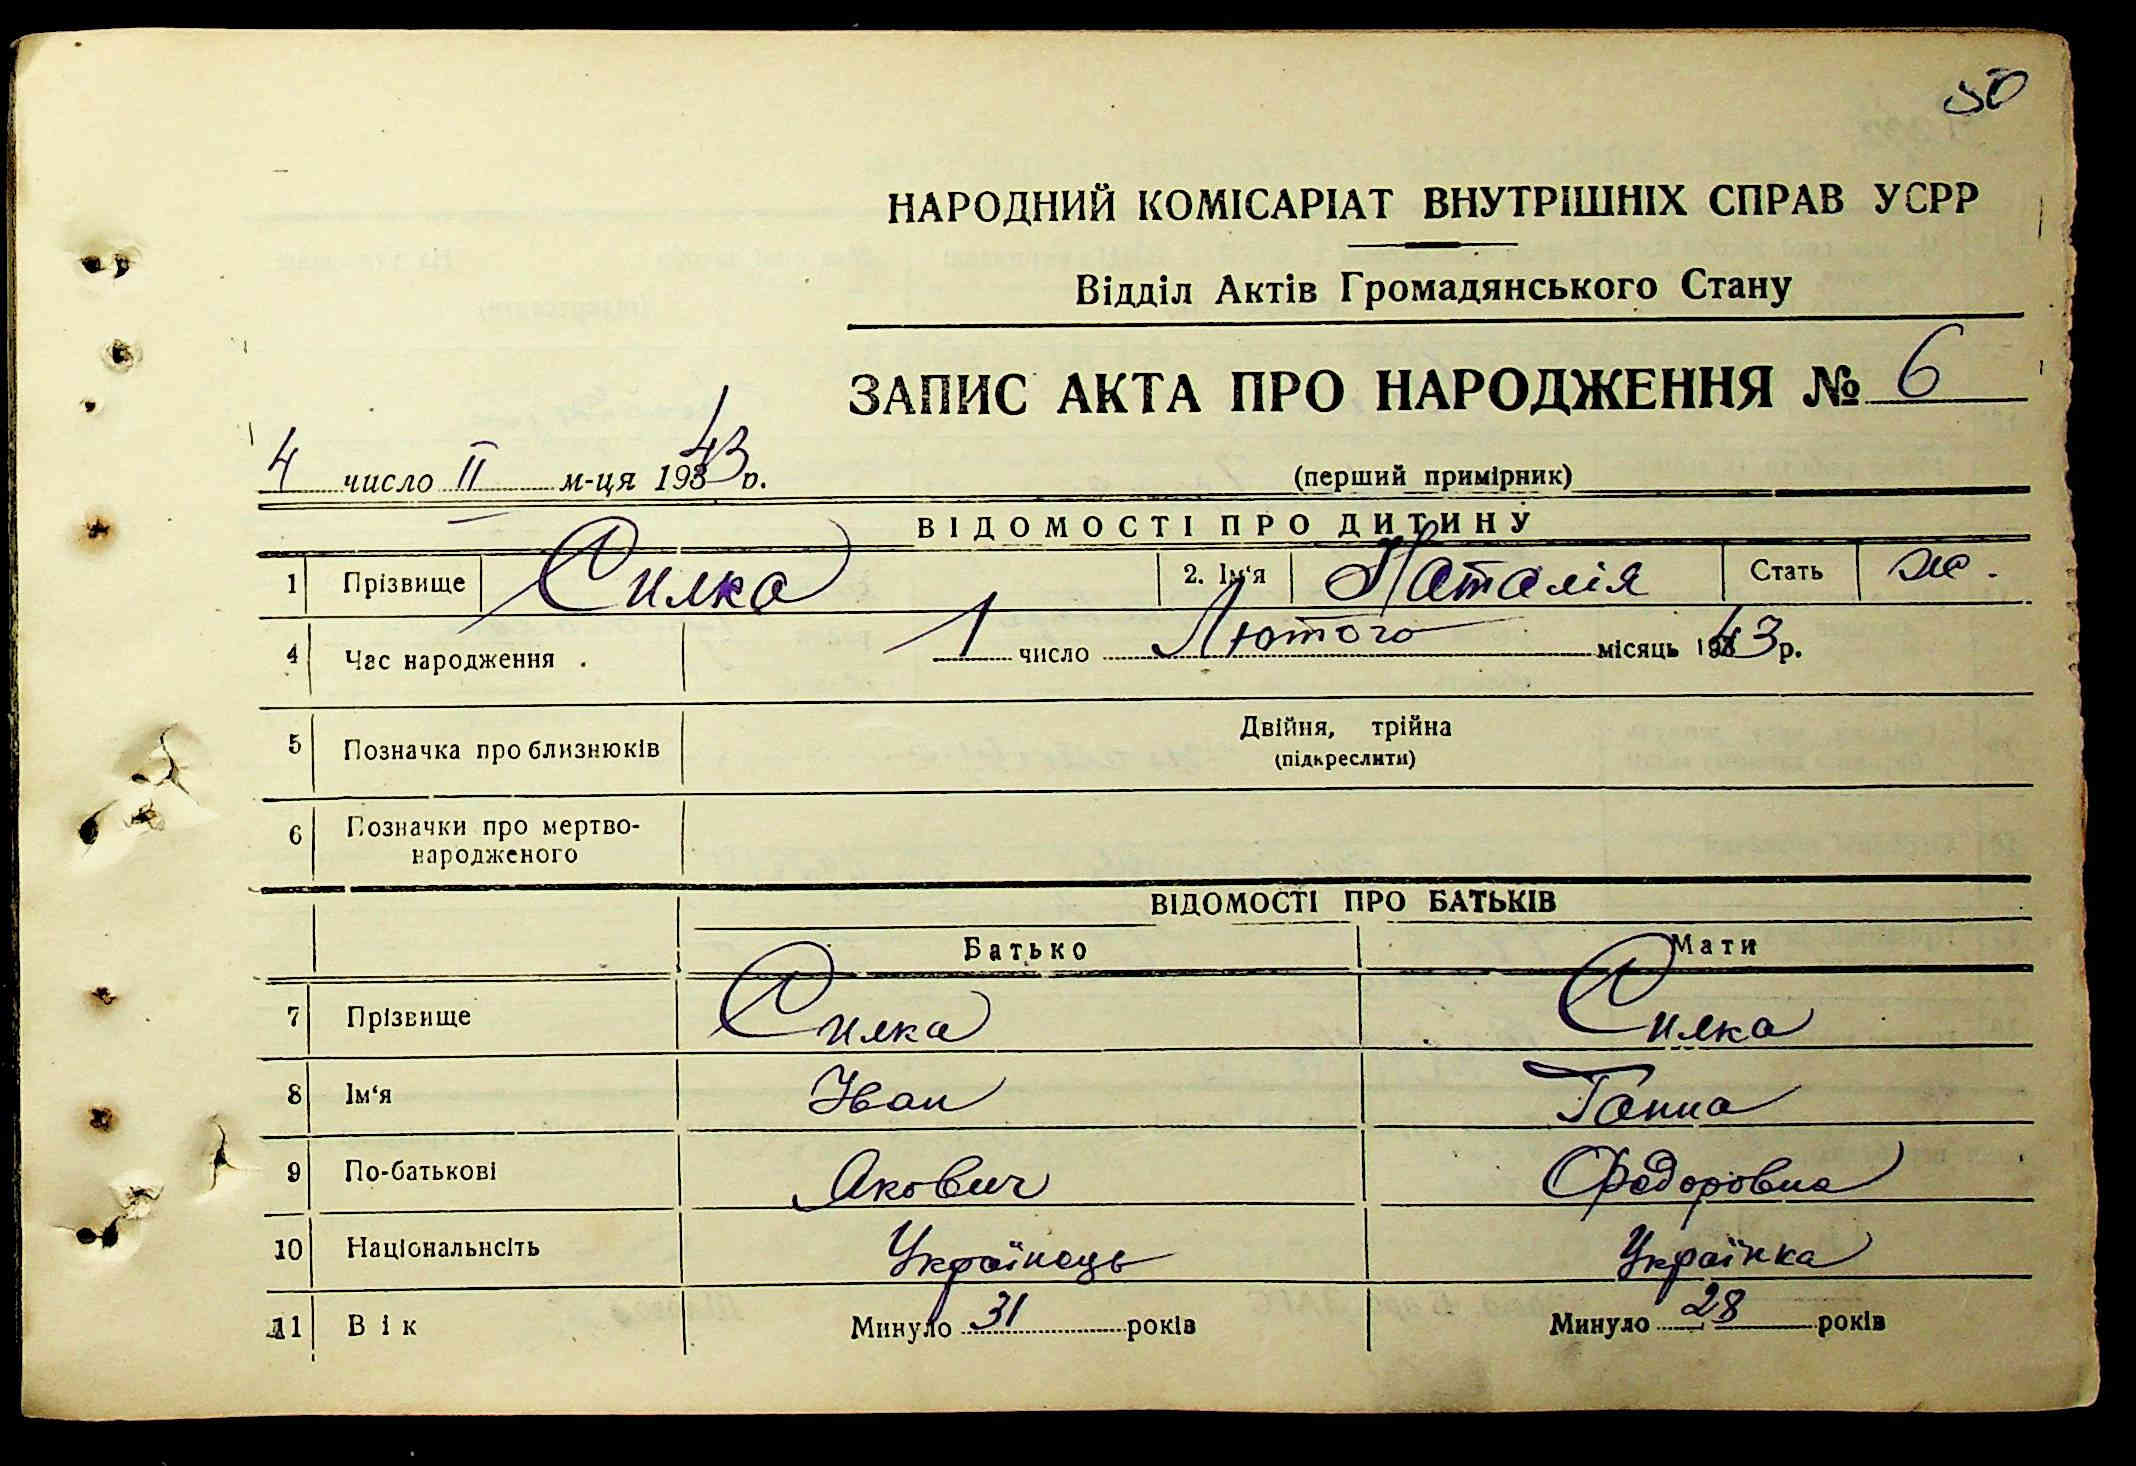 50
НАРОДНИЙ КОМІСАРІАТ ВНУТРІШНІХ СПРАВ УСРР
Відділ Актів Громадянського Стану
ЗАПИС АКТА ПРО НАРОДЖЕННЯ № 6
4 число II м-ця 1943 р.
(перший примірник)
ВІДОМОСТІ ПРО ДИТИНУ
1 Прізвище Силка 2. Ім‘я Наталія Стать ж.
4 Час народження . 1 число Лютого місяць 1943 р.
5 Позначка про близнюків Двійня, трійна
(підкреслити)
6 Позначки про мертво-
народженого
ВІДОМОСТІ ПРО БАТЬКІВ
Батько Мати
7 Прізвище Силка Силка
8 Ім‘я Іван Ганна
9 По-батькові Якович Федоровна
10 Національнсіть Українець Українка
11 Вік Минуло 31 років Минуло 28 років